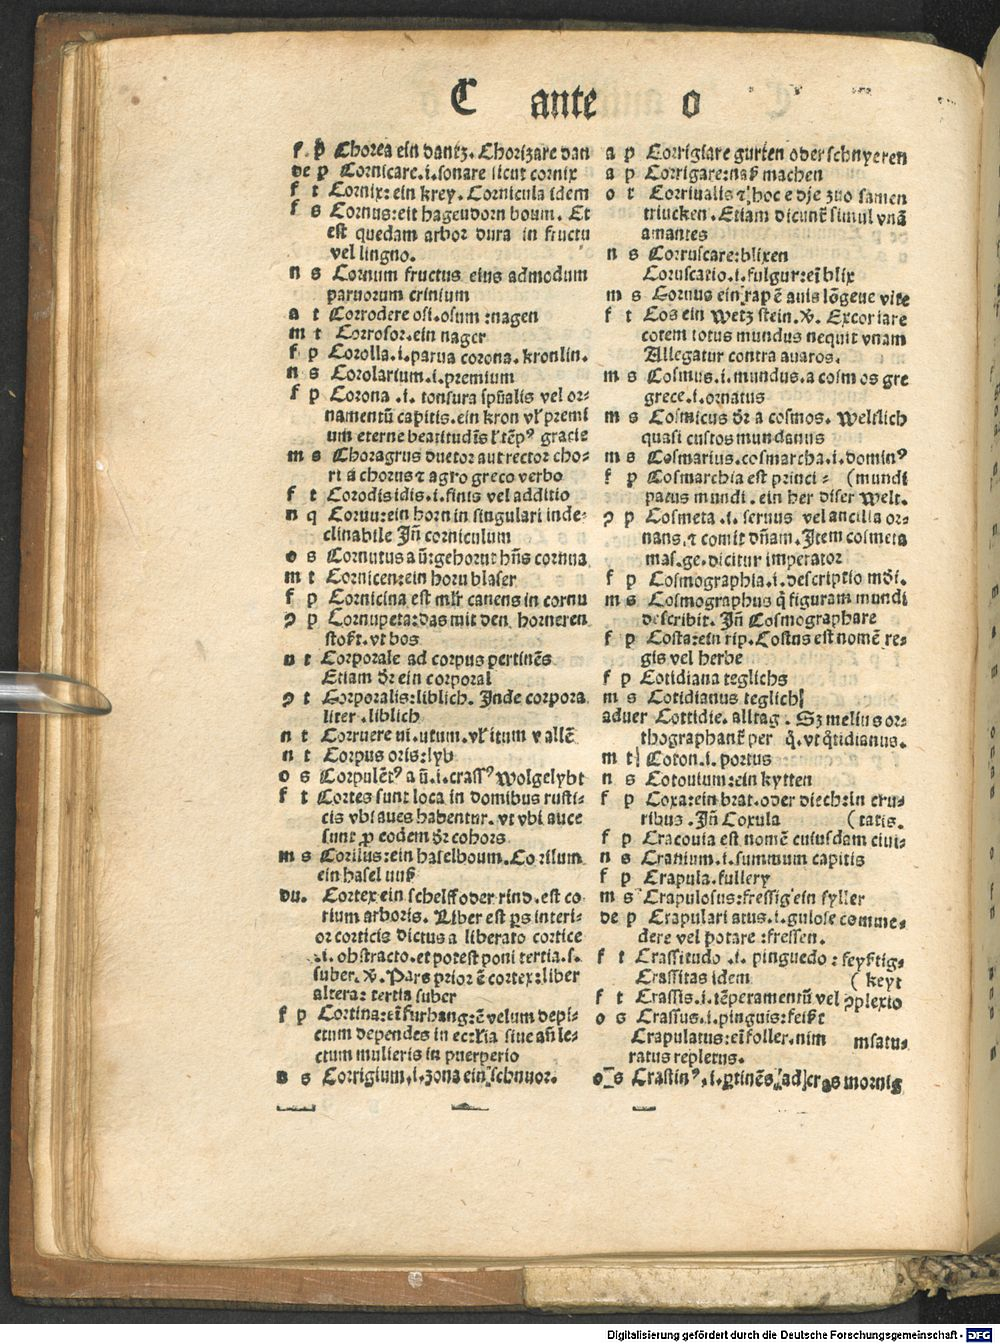 C ante o
f p Chorea ein dantz. Chorizare dan
de p Cornicare .i. sonare sicut cornix
f t Cornix: ein krey. Cornicula idem
f s Cornus: eit hagendorn boum. Et
est quedam arbor dura in fructu
vel lingno.
n s Cornum fructus eius admodum
paruorum crinium
a t Corrodere osi. osum: nagen
m t Corrosor. ein nager
f p Corolla .i. parua corona. kronlin.
n s Corolarium .i. premium
f p Corona .i. tonsura spūalis vel or⸗
namentū capitis. ein kron vł premi
um eterne beatitudīs ł tēpꝰ gracie
m s Choragrus duetor aut rector cho⸗
ri a chorus ⁊ agro greco verbo
f t Corodis idis .i. finis vel additio
n q Coruu: ein horn in singulari inde⸗
clinabile Jn̄ corniculum
o s Cornutus a ū: gehornt hn̄s cornua
m t Cornicen: ein horu blaser
f p Cornicina est mlr̄ canens in cornu
ꝯ p Cornupeta: das mit den horneren
stoßt. vt bos
n t Corporale ad corpus pertinēs
Etiam dr̄ ein corporal
ꝯ t Corporalis: liblich. Jnde corpora
liter. liblich
n t Corruere ui. utum. vł itum v allē
n t Corpus oris: lyb
o s Corpulētꝰ a ū .i. crassꝰ wolgelybt
f t Cortes sunt loca in domibus rusti⸗
cis vbi aues habentur. vt vbi auce
sunt ꝓ eodem dr̄ cohors
m s Corilus: ein haselboum. Corilum
ein hasel nuß
du. Cortex ein schelff oder rind. est co
rium arboris. Liber est ꝑs interi⸗
or corticis dictus a liberato cortice
.i. obstracto. et potest poni tertia. s.
suber. v̄. Pars prior ē cortex: liber
altera: tertia suber
f p Cortina: eī furhang: ē velum depi⸗
ctum dependes in eccłia siue an̄ le⸗
ctum mulieris in puerperio
n s Corrigium .i. zona ein schnuor.
a p Corrigiare gurten oder schnyeren
a p Corrigare: naß machen
o t Corriualis ⁊ hoc e dje zuo samen
trincken. Etiam dicunt̄ simul vnā
amantes
n s Corruscare: blixen
Coruscatio .i. fulgur: eī blix
m s Coruus ein rap ē auis lōgeue vite
f t Cos ein wetz stein. v̄. Excoriare
cotem totus mundus nequit vnam
Allegatur contra auaros.
m s Cosmus .i. mundus. a cosmos gre
grece .i. ornatus
m s Cosmicus dr̄ a cosmos. weltlich
quasi custos mundanus
m s Cosmarius. cosmarcha .i. dominꝰ
f p Cosmarchia est princi⸗ (mundi
patus mundi. ein her diser welt.
ꝯ p Cosmeta .i. seruus vel ancilla or⸗
nans. ⁊ comit dn̄am. Jtem cosmeta
mas. ge. dicitur imperator
f p Cosmographia .i. descriptio mōi.
m s Cosmographus q̄ figuram mundi
describit. Jn̄ Cosmographare
f p Costa: ein rip. Costus est nomē re⸗
gis vel herbe
f p Cotidiana teglichs
m s Cotidianus teglich
aduer Cottidie. alltag. Sz melius or⸗
thographant̄ per q̄. vt q̄tidianus.
m t Coton .i. portus
n s Cotonium: ein kytten
f p Coxa: ein brat. oder diech: in cru⸗
ribus. Jn̄ Coxula (tatis.
f p Cracouia est nomē cuiusdam ciui⸗
n s Cranium .i. summum capitis
f p Crapula. fullery
m s Crapulosus: fressig ein fyller
de p Crapulari atus .i. gulose comme⸗
dere vel potare: fressen.
f t Crassitudo .i. pinguedo: feyßtig⸗
Crassitas idem (keyt
f t Crassis .i. tēperamentū vel ꝯplexio
o s Crassus .i. pinguis: feißt
Crapulatus: eī foller. nim msatu⸗
ratus repletus.
o s Crastinꝰ .i. ꝑtinēs ad cras mornig
Digitalisierung gefördert durch die Deutsche Forschungsgemeinschaft - DFG